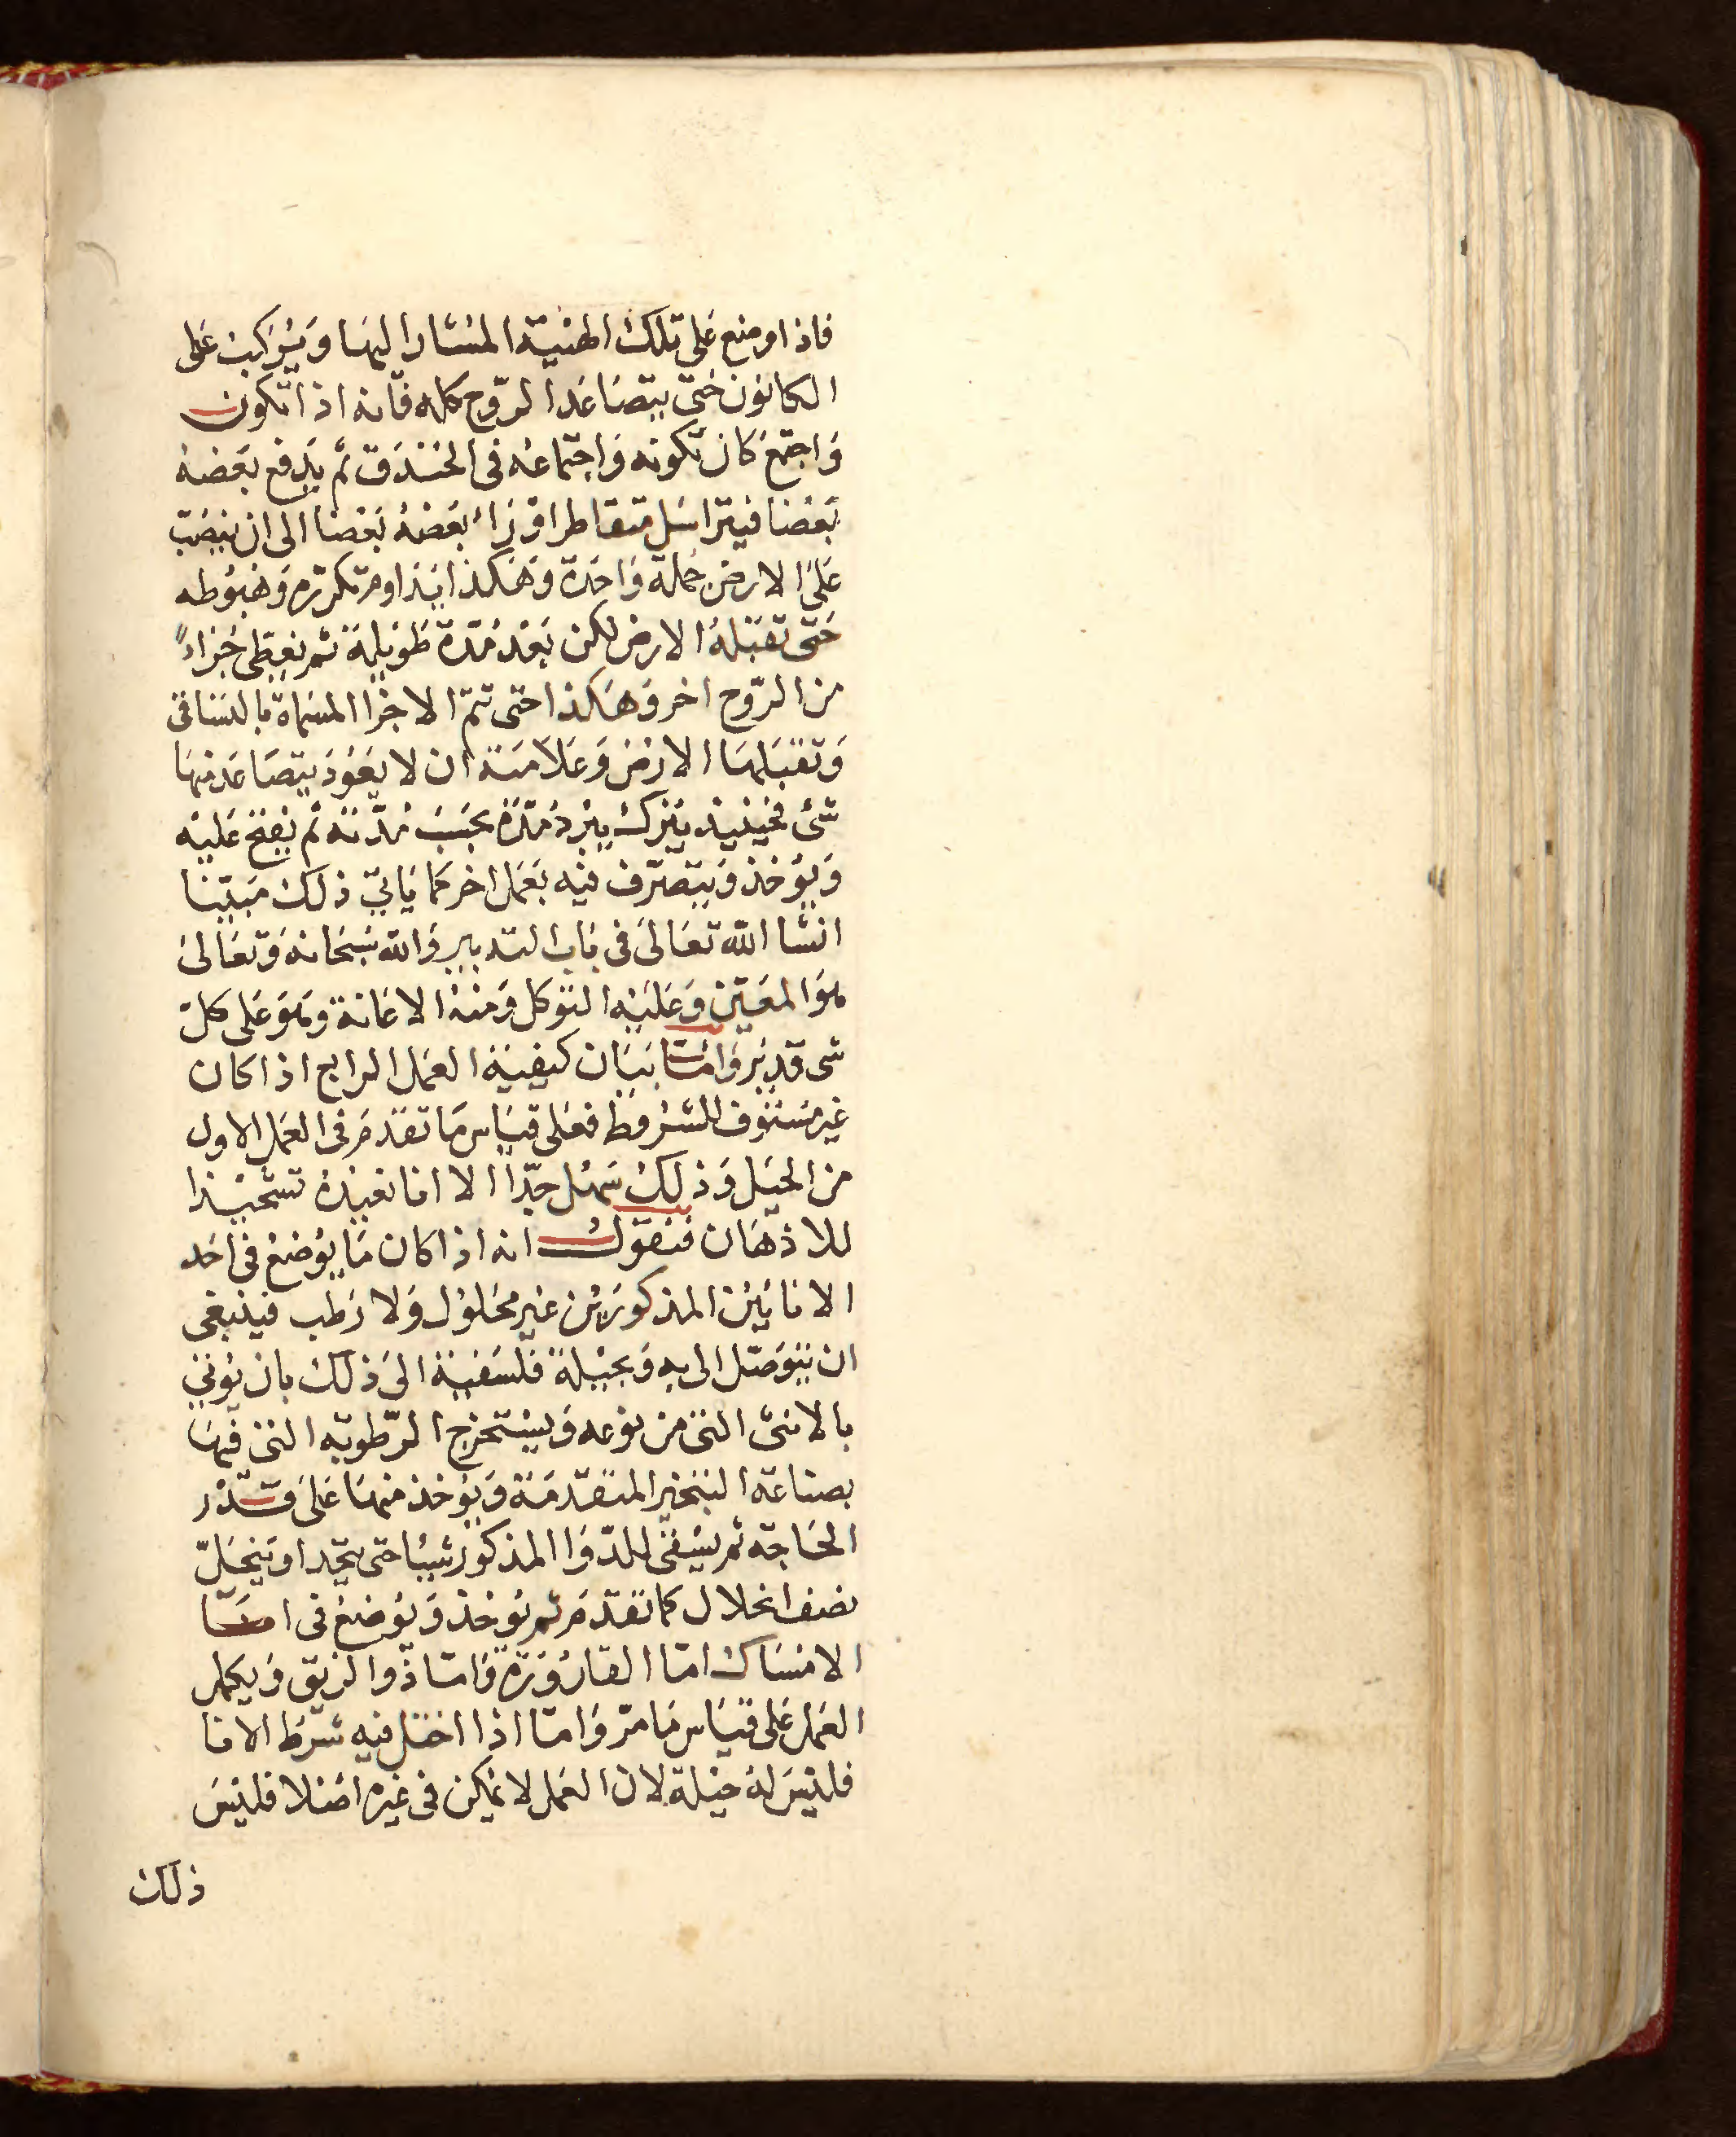 فاذا وضع على تلك الهيئة المشار اليها ويركب على
الكانون حتى يتصاعد الروح كله فانه اذا تكون
واجتمع كان تكونه واجتماعه فى الخندق ثم يدفع بعضه
بعضا فيتراسل متقاطرا وراء بعضه بعضا الى ان ينصب
على الارض جملة واحدة وهكذا ايذاوم تكرره وهبوطه
حتى تقبله الارض لكن بعد مدة طويلة ثم نعطى جزاء
من الروح اخر وهكذا حتى تتم الاجزا المسماة بالتساقى
وتقبلها الارض وعلامته ان لا يعود يتصاعد منها
شئ فحينيذ يترك يبرد مدة بحسب مدته ثم يفتح عليه
ويؤخذ ويتصرف فيه بعمل اخر كما ياتى ذلك مبينا
انشا الله تعالى فى باب التدبير والله سبحانه وتعالى
هو المعين وعليه التوكل ومنه الاعانة وهو على كل
شى قدير واما بيان كيفية العمل الرابع اذا كان
غير مستوف للشروط فعلى قياس ما تقدم فى العمل الاول
من الحيل وذلك سهل جدا الا انا نعيده تشحيذا
للاذهان فنقول انه اذا كان ما يوضع فى احد
الانائين المذكورين غير محلول ولا رطب فينبغى
ان يتوصل اليه وبحيلة فلسفية الى ذلك بان يوتى
بالانثى التى من نوعه ويستخرج الرطوبه التى فيها
بصناعة التبخير المتقدمة ويؤخذ منها على قدر
الحاجه ثم يسقى للدوا المذكور شيئا حتى يتحد او ينحل
نصف انحلال كما تقدم ثم يؤخذ ويوضع فى اما
الامساك اما القارورة واما ذو الزيق ويكمل
العمل على قياس ما مر واما اذا اختل فيه شرط الانا
فليس له حيلة لان العمل لا يمكن فى غيره اصلا فليس
ذلك